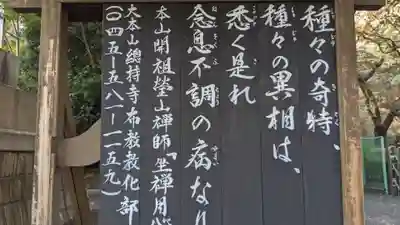 種々の奇特、
種々の異相は、
悉く是れ
念息不調の病なり
本山開祖瑩山禅師『坐禅用心
大本山總持寺布教教化部
(〇四五-五八一-一一五九)